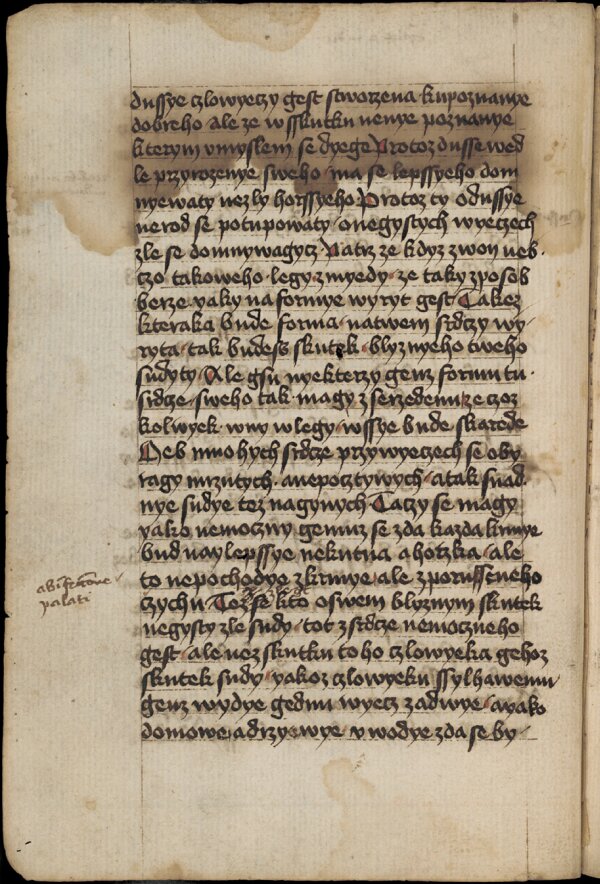 dussye czlowyeczy gest stworzena kupoznanye
dobreho ale ze w sskutku nenye poznanye
kterym vmyslem se dyege Protoz dusse wed
le przyrozenye sweho ma se lepssyeho dom
nyewaty nezly horssyeho Protoz ty odussye
nerod se potupowaty onegystych wyeczech
zle se domnywagycz Patrz ze kdyz zwon neb
czo takoweho legy zmyedy ze taky zposob
berze yaky naformye wyryt gest Takez
kteraka bude forma natwem srdczy wy
ryta tak budess skutek blyznyeho tweho
sudyty Ale gsu nyekterzy genz formu tu
srdcze sweho tak magy zserzedenu ze czoz
kolwyek wny wlegy wssye bude skarede
Neb mnohych srdcze przywyeczech se oby
ragy mrzutych anepocztywych atak snad
nye sudye tez nagynych Taczy se magy
yako nemoczny gemuz se zda kazda krmye
bud naylepssye nekutna ahorzka ale
to nepochodye zkrmye ale zporusseneho
czychu Tez se kto oswem blyznym skutek
negysty zle sudy tot zsrdcze nemoczneho
gest ale nezskutku toho czlowyeka gehoz
skutek sudy yakoz czlowyeku ssylhawemu
genz wydye gednu wyecz zadwye ayako
domowe adrzywye vwodye zdase by
palati